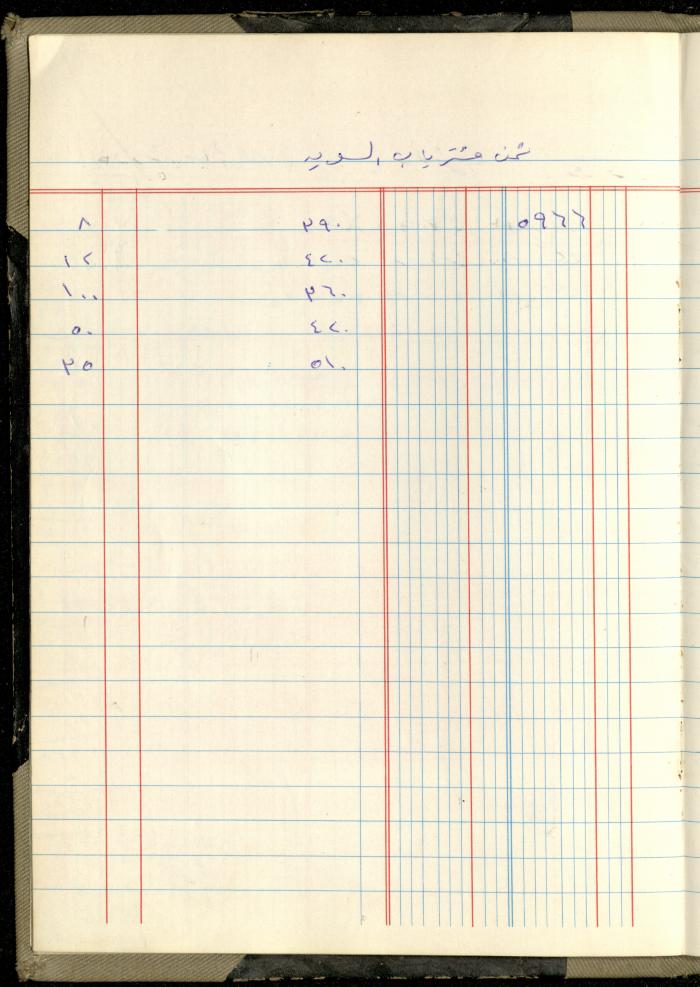 ثمن مشتريات السويد
٥٩٦٦ ٣٩٠ ٨
٤٢٠ ١٢
٣٦٠ ١٠٠
٤٢٠ ٥٠
٥١٠ ٣٥